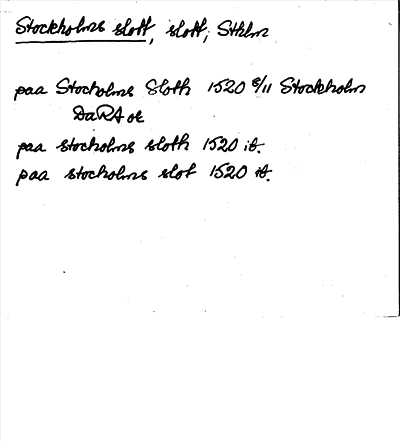 Stockholms slott, slott, Sthlm
paa Stocholms Sloth 1520 8/11 Stockholm
DaRA oe
paa stocholms sloth 1520 ib.
paa stocholms slot 1520 ib.